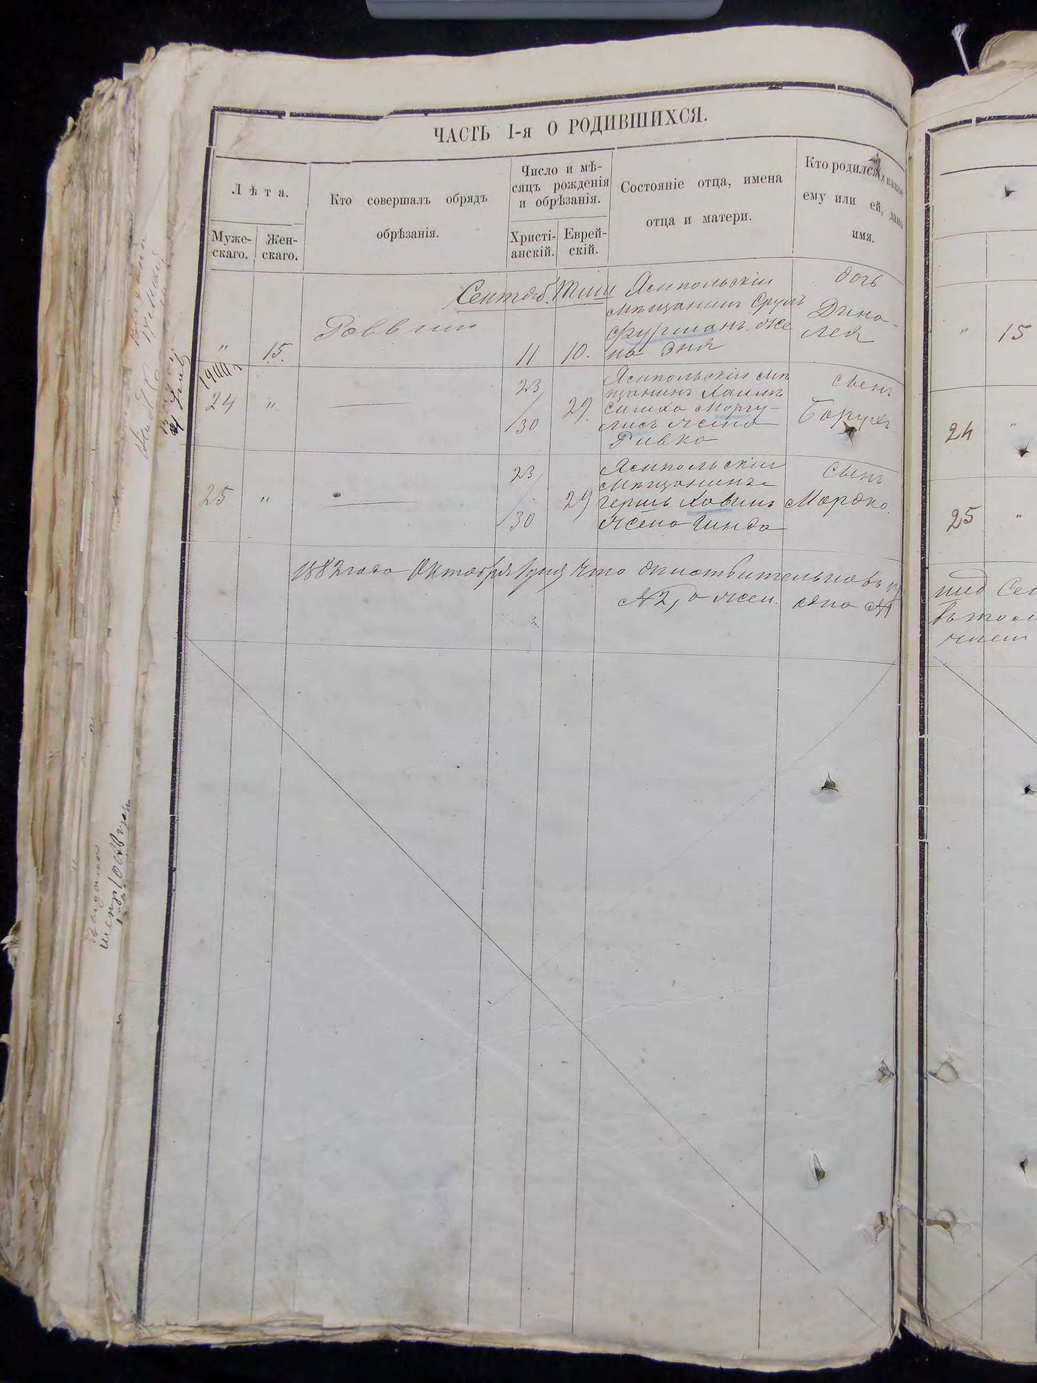 ЧАСТЬ I-я О РОДИВШИХСЯ.
Лѣта.
Муже-
скаго.
Жен-
скаго.
Кто совершалъ обрядъ
обрѣзанія.
Число и мѣ-
сяцъ рожденія
и обрѣзанія.
Христі-
анскій.
Еврей-
скій.
Состояніе отца, имена
отца и матери.
Кто родился и какое
ему или ей, дано
имя.
Сентяб. Тиш
„ 15. Раввин 11 10.
Ямпольскій
мѣщанинъ Сруль
Фурманъ. же
на Эня
дочь
Дина-
Лея
24 „ 23/30 29
Ямпольскій мѣ
щанинъ Хаимъ
Симха Моргу-
лисъ жена
Ривка
сынъ
Борухъ
25 „ 23/30 29
Ямпольскій
мѣщанинъ
Гершъ
жена Гинда
сынъ
Мордко.
1882 года Октября 1 дня Что дѣйствительно въ
№2, а жен. одна №1
„ 15
24 „
25 „